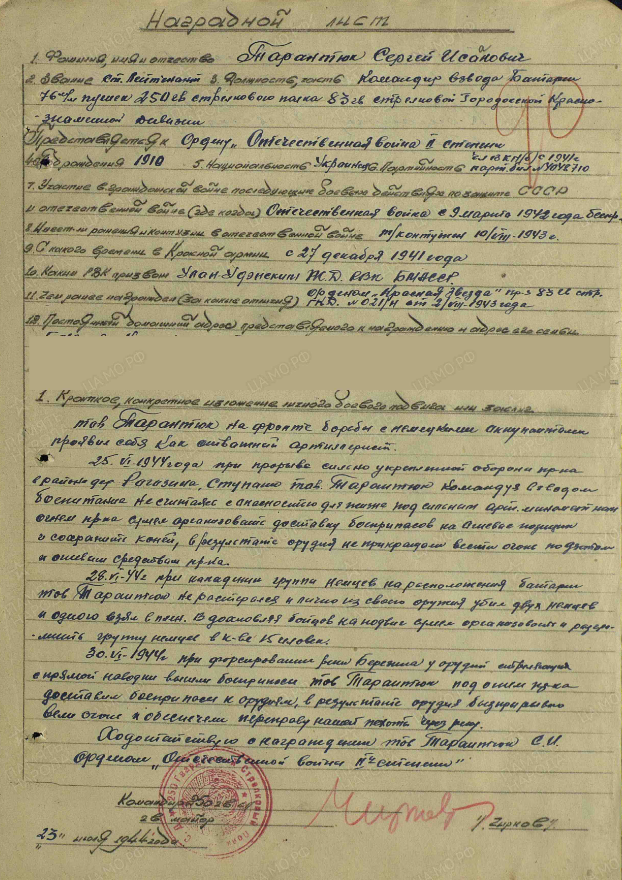 Наградной лист
1. Фамилия, имя и отчество Тарантюк Сергей Исакович
2. Звание ст. Лейтенант 3. Должность, часть Командир взвода Батареи
76 м/м пушек 250 гв стрелкового полка 83 гв стрелковой Городокской Красно-
-знаменной дивизии
Представляется к Ордену „Отечественная война II степени
4. Год рождения 1910 5. Национальность Украинец 6. Партийность чл ВКП(б) с 1941 г
парт. бил №
7. Участие в гражданской войне последующие боевые действия по защите СССР
и отечественной войне (где когда) Отечественная война с 9 марта 1942 года
8. Имеет ли ранения и контузии в отечественной войне т/контужен 10/VIII-1943 г.
9. С какого времени в Красной армии с 27 декабря 1941 года
10. Каким РВК призван Улан-Удэнским ЖД РВК БМАССР
11. Чем ранее награжден (за какие отличия) орденом „Красная Звезда" пр-з 83 гв стр.
№ 021/н от 2/VIII-1943 года
12. Постоянный домашний адрес представляемого к награждению и адрес его семьи
1. Краткое, конкретное изложение личного боевого подвига или заслуг
тов Тарантюк на фронте борьбы с немецкими оккупантами
проявил себя как отважный артиллерист.
25.VI.1944 года при прорыве сильно укрепленной обороны пр-ка
в районе дер Рогозина. Ступаки тов. Тарантюк командуя взводом
боепитания не считаясь с опасностью для жизни под сильным арт. минометным
огнем пр-ка сумел организовать доставку боеприпасов на огневые позиции
и сохранить коней, в результате орудия не прекращали вести огонь по
и огневым средствам пр-ка.
28.VI-44 г при нападении группы немцев на расположения батареи
тов Тарантюк не растерялся и лично из своего оружия убил двух немцев
и одного взял в плен. Вдохновляя бойцов на подвиг сумел организовать и разгро-
-мить группу немцев в к-ве 15 человек.
30.VI-1944 г при форсировании реки Березина у орудий стреляющих
с прямой наводки вышли боеприпасы тов Тарантюк под огнем пр-ка
доставил боеприпасы к орудиям, в результате орудия беспрерывно
вели огонь и обеспечили переправу нашей пехоты через реку.
Ходатайствую о награждении тов Тарантюк С.И.
орденом „Отечественной войны IIой степени"
Командир 250 гв сп
гв майор /Чирков/
„23" июля 1944 года
ЦАМО.РФ